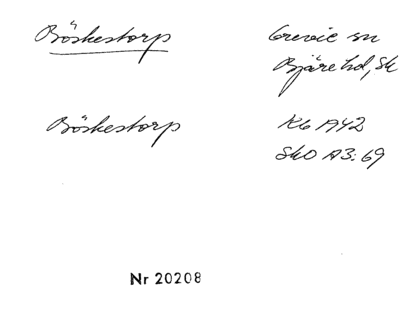 Böskestorp
Grevie sn
Bjäre hd, Sk
Böskestorp
KB 1942
SkO A3:69
Nr 20208